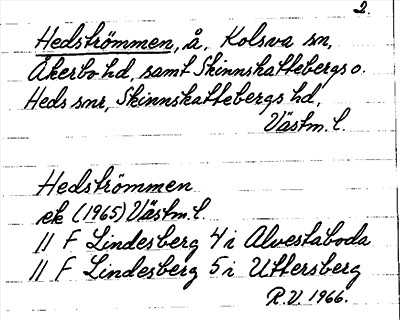 2.
Hedströmmen, å, Kolsva sn,
Åkerbo hd, samt Skinnskattebergs o.
Heds snr, Skinnskattebergs hd,
Västm. l.
Hedströmmen
ek (1965) Västm. l.
11 F Lindesberg 4 i Alvestaboda
11 F Lindesberg 5 i Uttersberg
R.V. 1966.